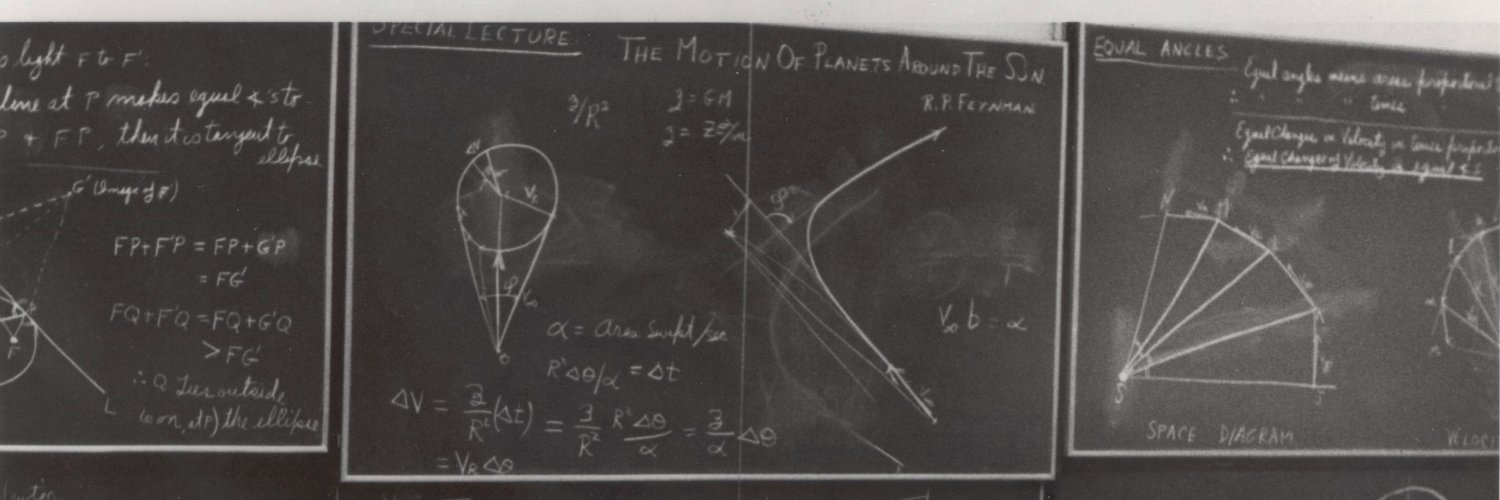 light F to F':
line at P makes equal ∡'s to
& FP, then it is tangent to
ellipse
G' (Image of F)
FP+F'P = FP+G'P
= FG'
FQ+F'Q = FQ+G'Q
> FG'
∴ Q lies outside
(or on, at P) the ellipse
F
L
SPECIAL LECTURE:
THE MOTION OF PLANETS AROUND THE SUN
R.P. FEYNMAN
z/R²
z = GM
z = Ze²/m
ΔV
V_R
φ
V∞
O
φ
V∞
α = area swept/sec
R²Δθ/α = Δt
V∞ b = α
ΔV = z/R² (Δt) = z/R² R²Δθ/α = z/α Δθ
= V_R Δθ
EQUAL ANGLES
Equal angles means areas proportional
∴ " " " times
Equal Changes in Velocity in times
∴ Equal Changes of Velocity in equal ∡'s
N
M
S
J
SPACE DIAGRAM
VELOCI